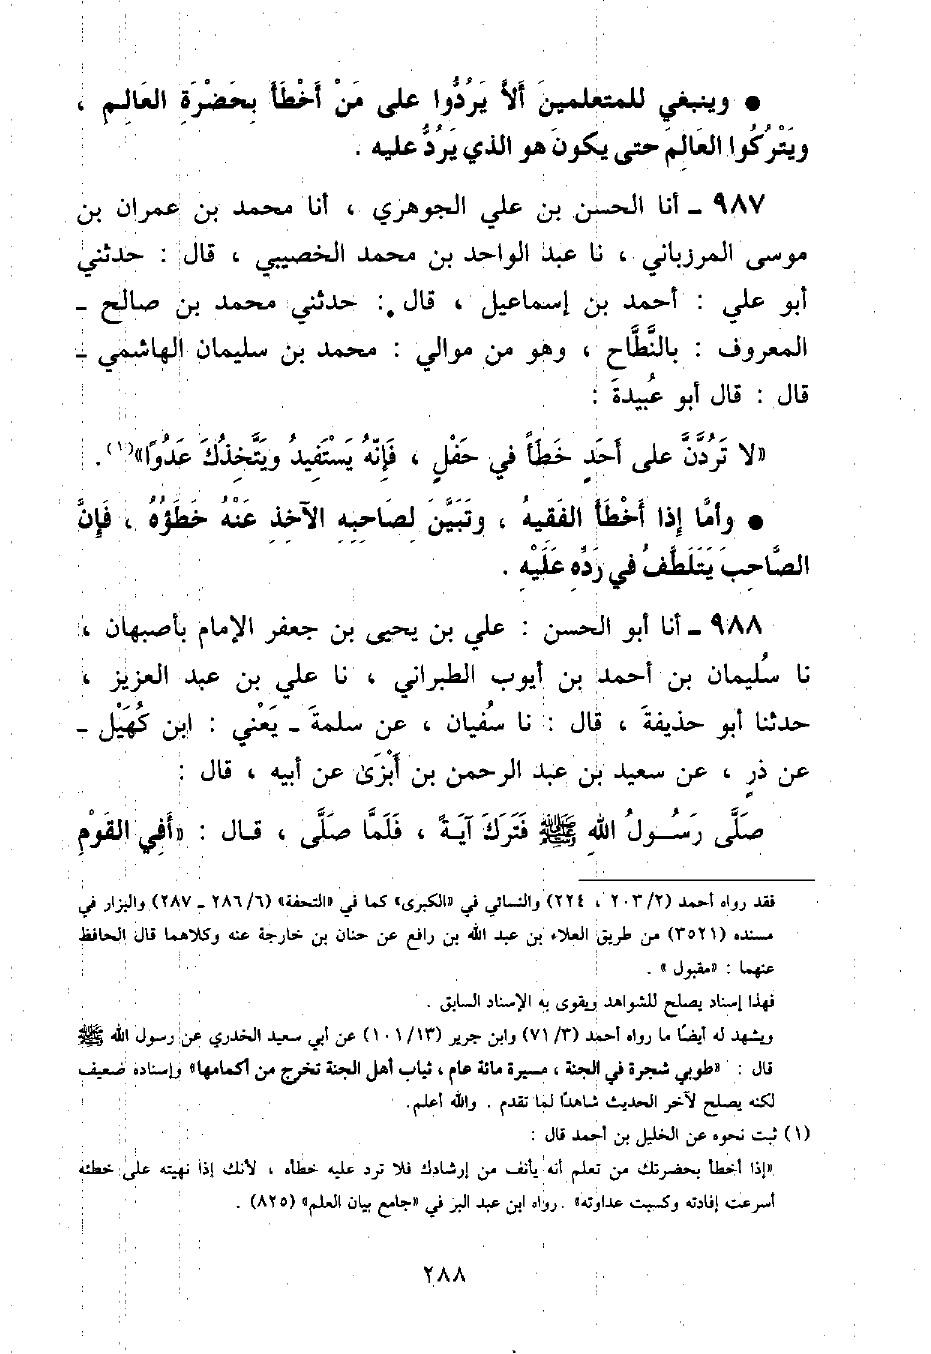 ● وينبغي للمتعلمينَ أَلاَّ يَرُدُّوا على مَنْ أَخْطَأَ بِحَضْرَةِ العَالِمِ ،
ويَتْرُكُوا العَالِمَ حتى يكونَ هو الذي يَرُدُّ عليه .
٩٨٧ ـ أنا الحسن بن علي الجوهري ، أنا محمد بن عمران بن
موسى المرزباني ، نا عبد الواحد بن محمد الخصيبي ، قال : حدثني
أبو علي : أحمد بن إسماعيل ، قال : حدثني محمد بن صالح ـ
المعروف : بالنَّطَّاح ، وهو من موالي : محمد بن سليمان الهاشمي ـ
قال : قال أبو عُبيدةَ :
«لا تَرُدَّنَّ على أَحَدٍ خَطَأً في حَفْلٍ ، فَإِنّهُ يَسْتَفِيدُ ويَتَّخِذُكَ عَدُوًا»(١) .
● وأَمَّا إِذا أَخْطَأَ الفَقِيهُ ، وتَبَيَّنَ لِصَاحِبِهِ الآخِذِ عَنْهُ خَطَؤُهُ ، فَإِنَّ
الصَّاحِبَ يَتَلَطَّفُ في رَدِّهِ عَلَيْهِ .
٩٨٨ ـ أنا أبو الحسن : علي بن يحيى بن جعفر الإمام بأصبهان ،
نا سُليمان بن أحمد بن أيوب الطبراني ، نا علي بن عبد العزيز ،
حدثنا أبو حذيفةَ ، قال : نا سُفيان ، عن سلمةَ ـ يَعْني : ابن كُهَيْل ـ
عن ذرٍ ، عن سعيد بن عبد الرحمن بن أَبْزَىٰ عن أبيه ، قال :
صَلَّى رَسُولُ اللهِ ﷺ فَتَرَكَ آيَةً ، فَلَمَّا صَلَّى ، قـال : «أَفِي القَوْمِ
فقد رواه أحمد (٢٠٣/٢ ، ٢٢٤) والنسائي في «الكبرى» كما في «التحفة» (٢٨٦/٦ ـ ٢٨٧) والبزار في
مسنده (٣٥٢١) من طريق العلاء بن عبد الله بن رافع عن حنان بن خارجة عنه وكلاهما قال الحافظ
عنهما : «مقبول» .
فهذا إسناد يصلح للشواهد ويقوى به الإسناد السابق .
ويشهد له أيضًا ما رواه أحمد (٧١/٣) وابن جرير (١٠١/١٣) عن أبي سعيد الخدري عن رسول الله ﷺ
قال : «طوبي شجرة في الجنة ، مسيرة مائة عام ، ثياب أهل الجنة تخرج من أكمامها» وإسناده ضعيف
لكنه يصلح لآخر الحديث شاهدًا لما تقدم . والله أعلم.
(١) ثبت نحوه عن الخليل بن أحمد قال :
«إذا أخطأ بحضرتك من تعلم أنه يأنف من إرشادك فلا ترد عليه خطأه ، لأنك إذا نهيته على خطئه
أسرعت إفادته وكسبت عداوته» . رواه ابن عبد البر في «جامع بيان العلم» (٨٢٥) .
٢٨٨